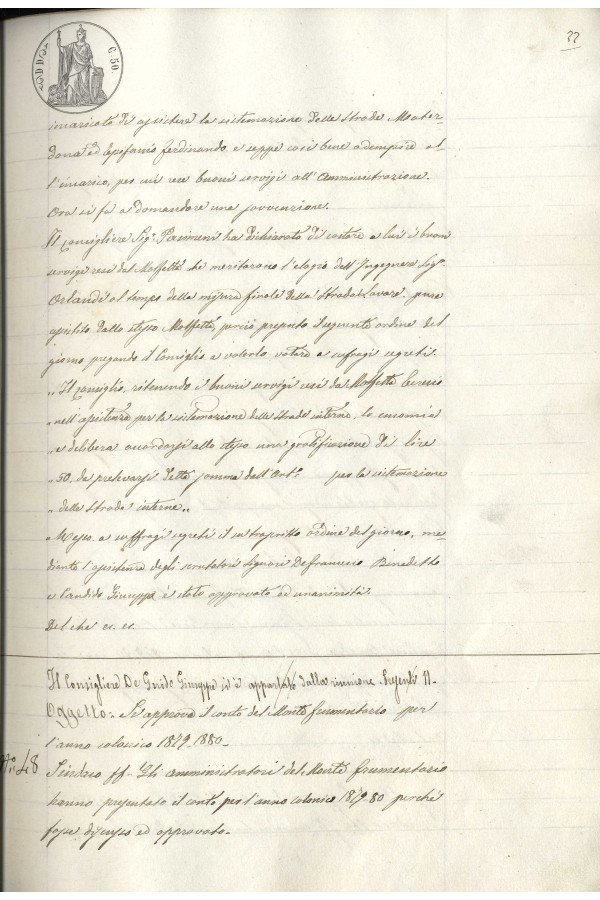 C. 50.
22
incaricato di assistere la sistemazione delle strade Mater-
dona ed Epifanio ferdinando, e seppe così bene adempire al-
l'incarico, per cui rese buoni servigi all'Amministrazione.
Ora si fa a domandare una sovvenzione.
Il Consigliere Sig.r Pacimeni ha dichiarato di costare a lui i buoni
servigi resi dal Moffetta che meritarono l'elogio dell'Ingegnere Sig.r
Orlandi al tempo della misura finale della Strada Lavare, pure
assistito dallo stesso Moffetta, perciò proponto il seguente ordine del
giorno pregando il Consiglio a volerlo votare a suffragi segreti.
„Il Consiglio, ritenendo i buoni servigi resi da Moffetta
„nell'assistenza per la sistemazione delle strade interne, lo encomia
„e delibera accordarsi allo stesso una gratificazione di lire
„50, da prelevarsi detta somma dall'Art.o per la sistemazione
„delle strade interne„
„Messo a suffragi segreti il sutrascritto ordine del giorno, me-
diante l'assistenza degli scrutatori signori Defrancesco Benedetto
e Candido Giuseppe è stato approvato ad unanimità.
Del che ec. ec.
Il Consigliere De Guido Giuseppe si è appartato dalla riunione. Presenti 11.
Oggetto= Si approva il conto del Monte frumentario per
l'anno colonico 1879-1880_
N.o 48
Sindaco ff_ Gli amministratori del Monte frumentario
hanno presentato il conto per l'anno colonico 1879-80 perchè
fosse discusso ed approvato_